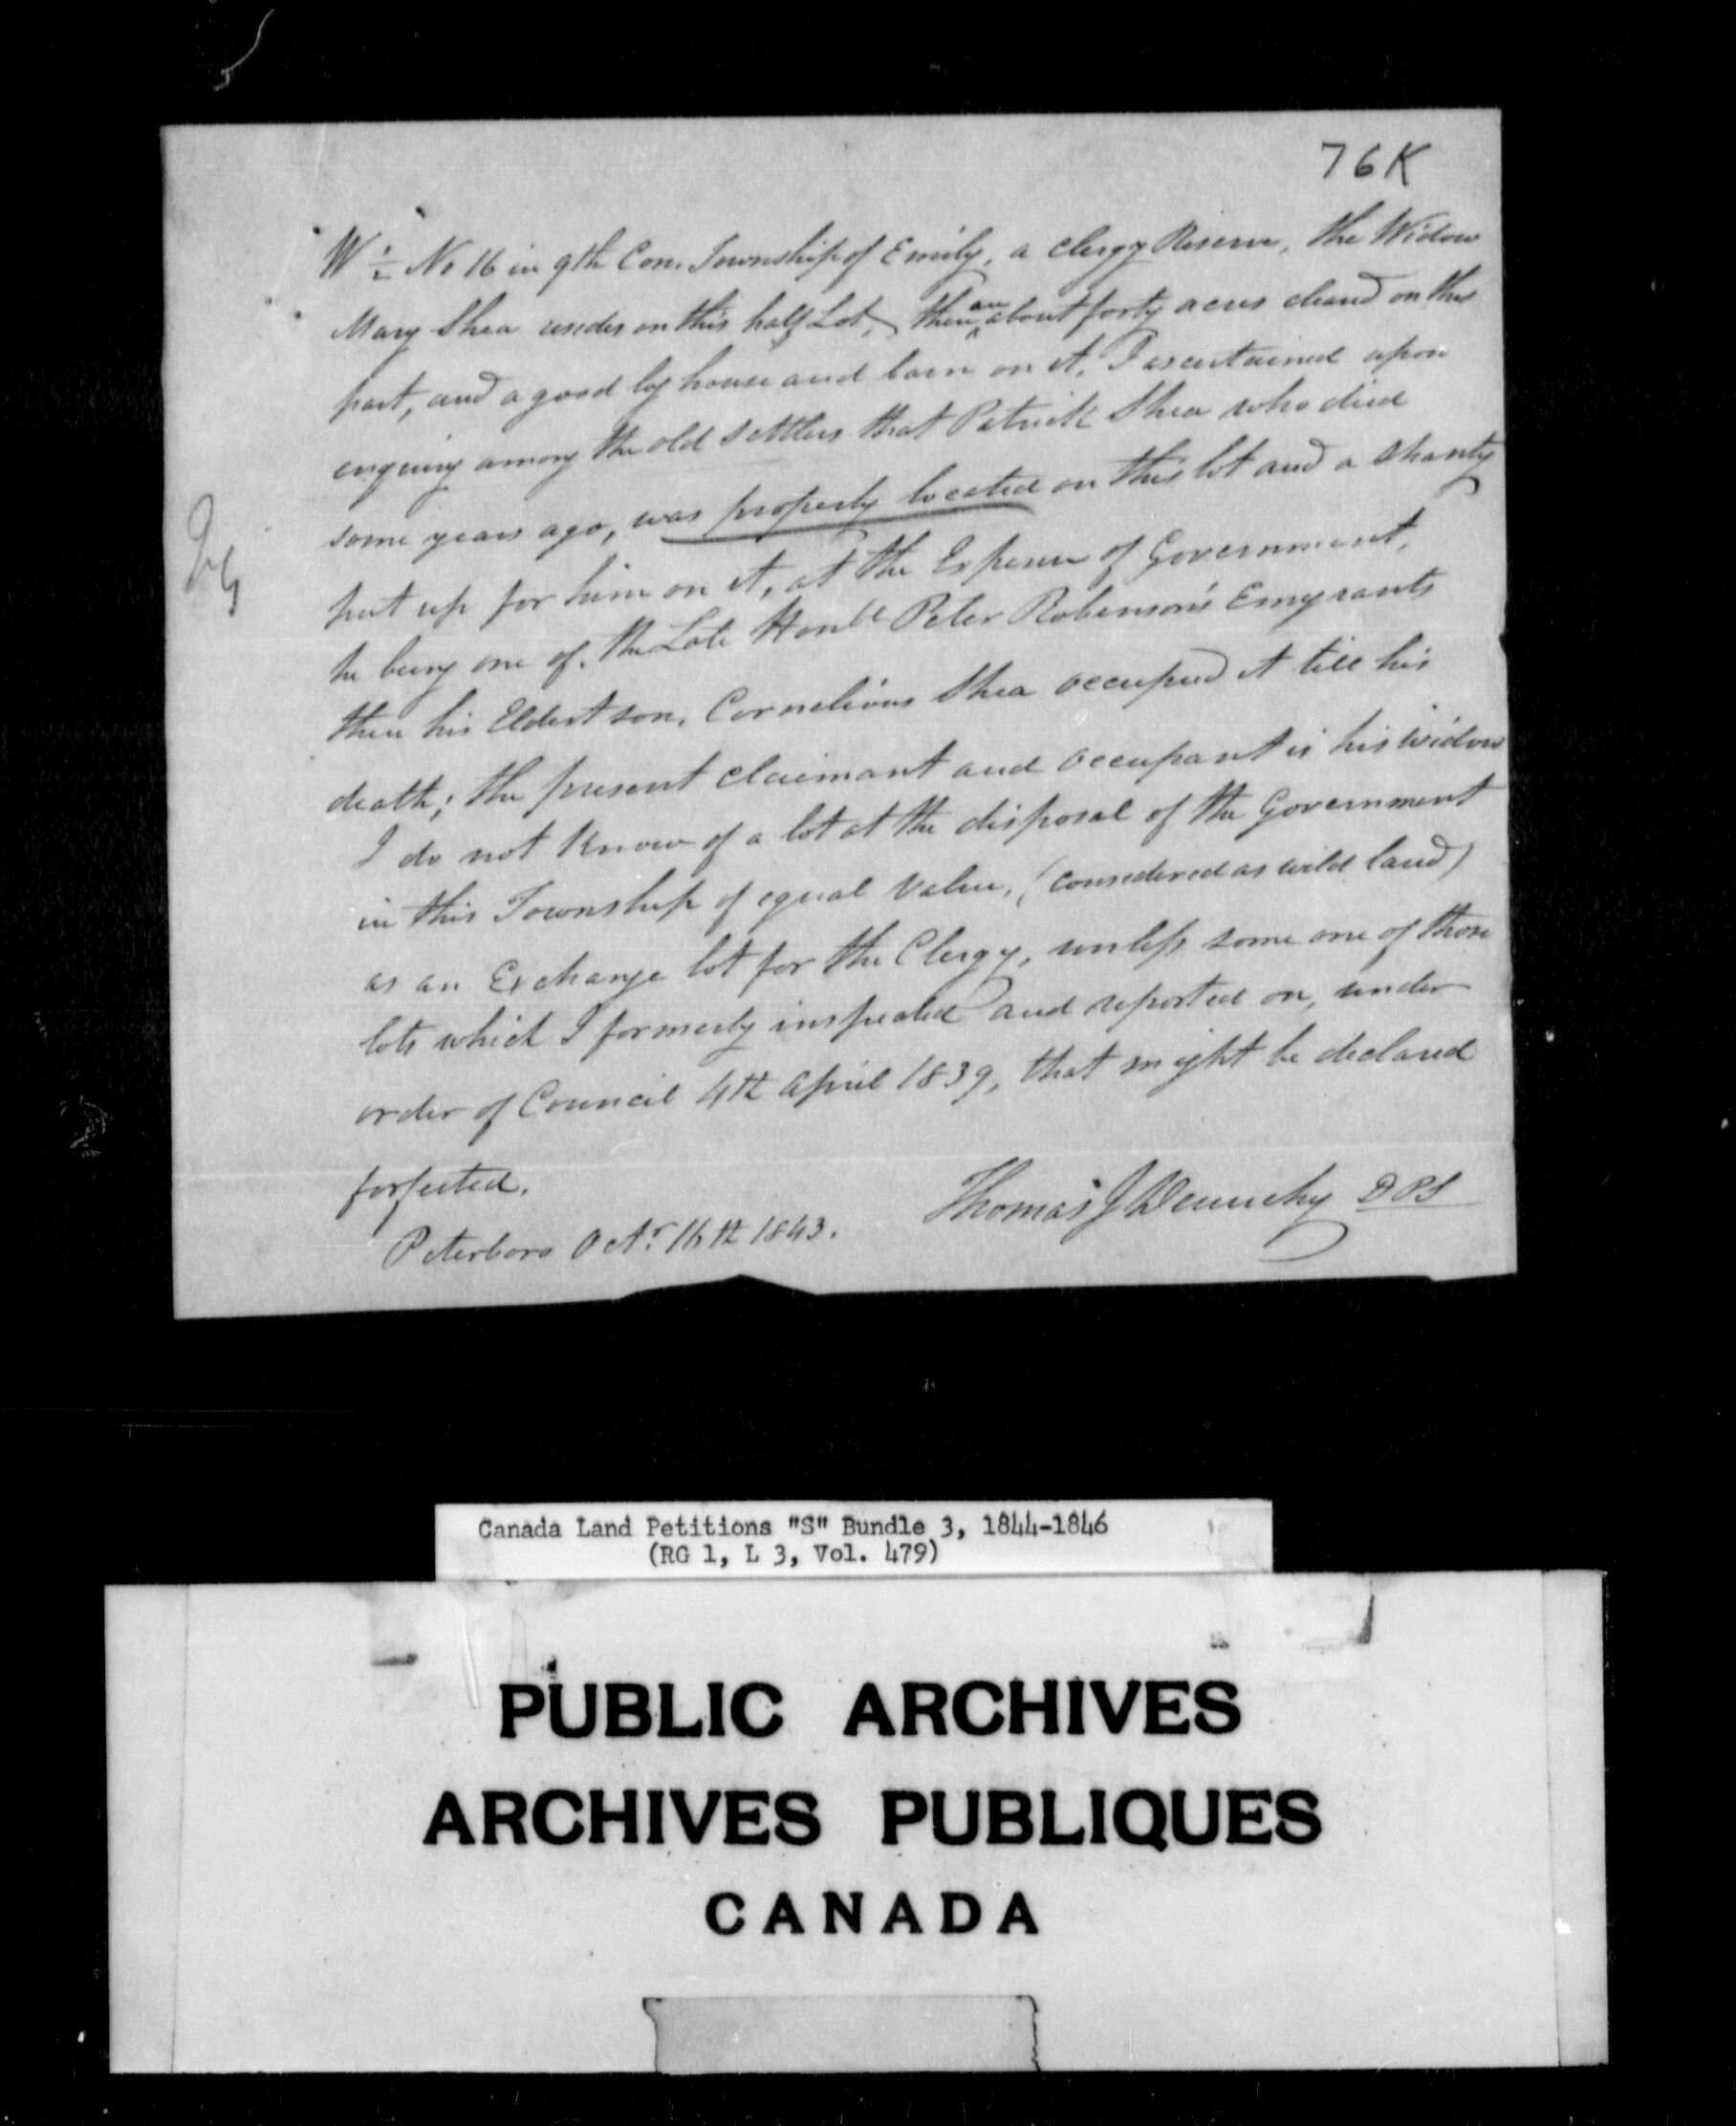 76K
W ½ No 16 in 9th Con. Township of Emily, a Clergy Reserve, the Widow
Mary Shea resides on this half Lot, there are about forty acres cleared on this
part, and a good log house and barn on it, I ascertained upon
enquiry among the old settlers that Patrick Shea who died
some years ago, was properly located on this lot and a Shanty
put up for him on it, at the Expense of Government,
he being one of the Late Honble Peter Robinson's Emigrants
then his Eldest son, Cornelious Shea occupied it till his
death; the present claimant and occupant is his widow
I do not Know of a lot at the disposal of the Government
in this Township of equal Value, (considered as wild land)
as an Exchange lot for the Clergy, unless some one of those
lots which I formerly inspected and reported on, under
order of Council 4th April 1839, that might be declared
forfeited.
Thomas J Dennehy DPS
Peterboro Octr. 16th 1843.
Canada Land Petitions "S" Bundle 3, 1844-1846
(RG 1, L 3, Vol. 479)
PUBLIC ARCHIVES
ARCHIVES PUBLIQUES
CANADA